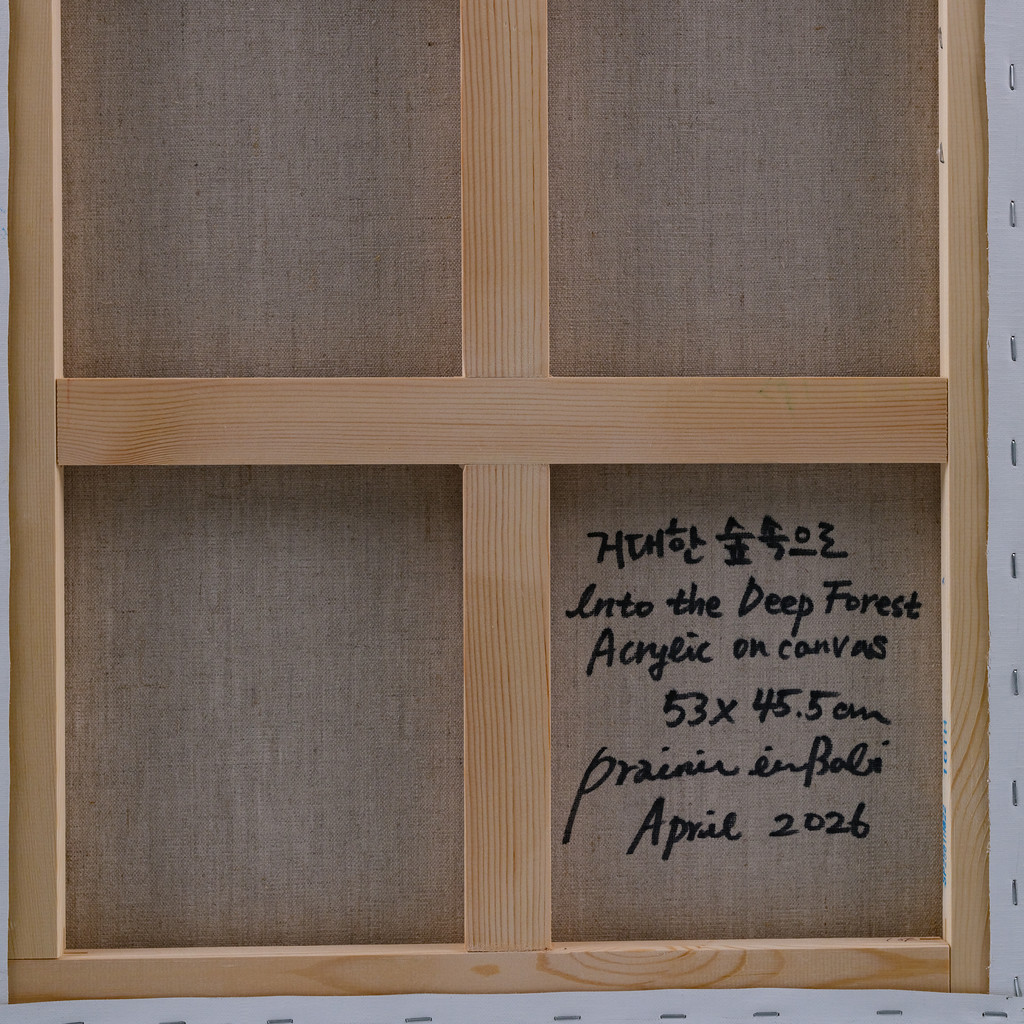 거대한 숲속으로
Into the Deep Forest
Acrylic on canvas
53x 45.5cm
in Bali
April 2026